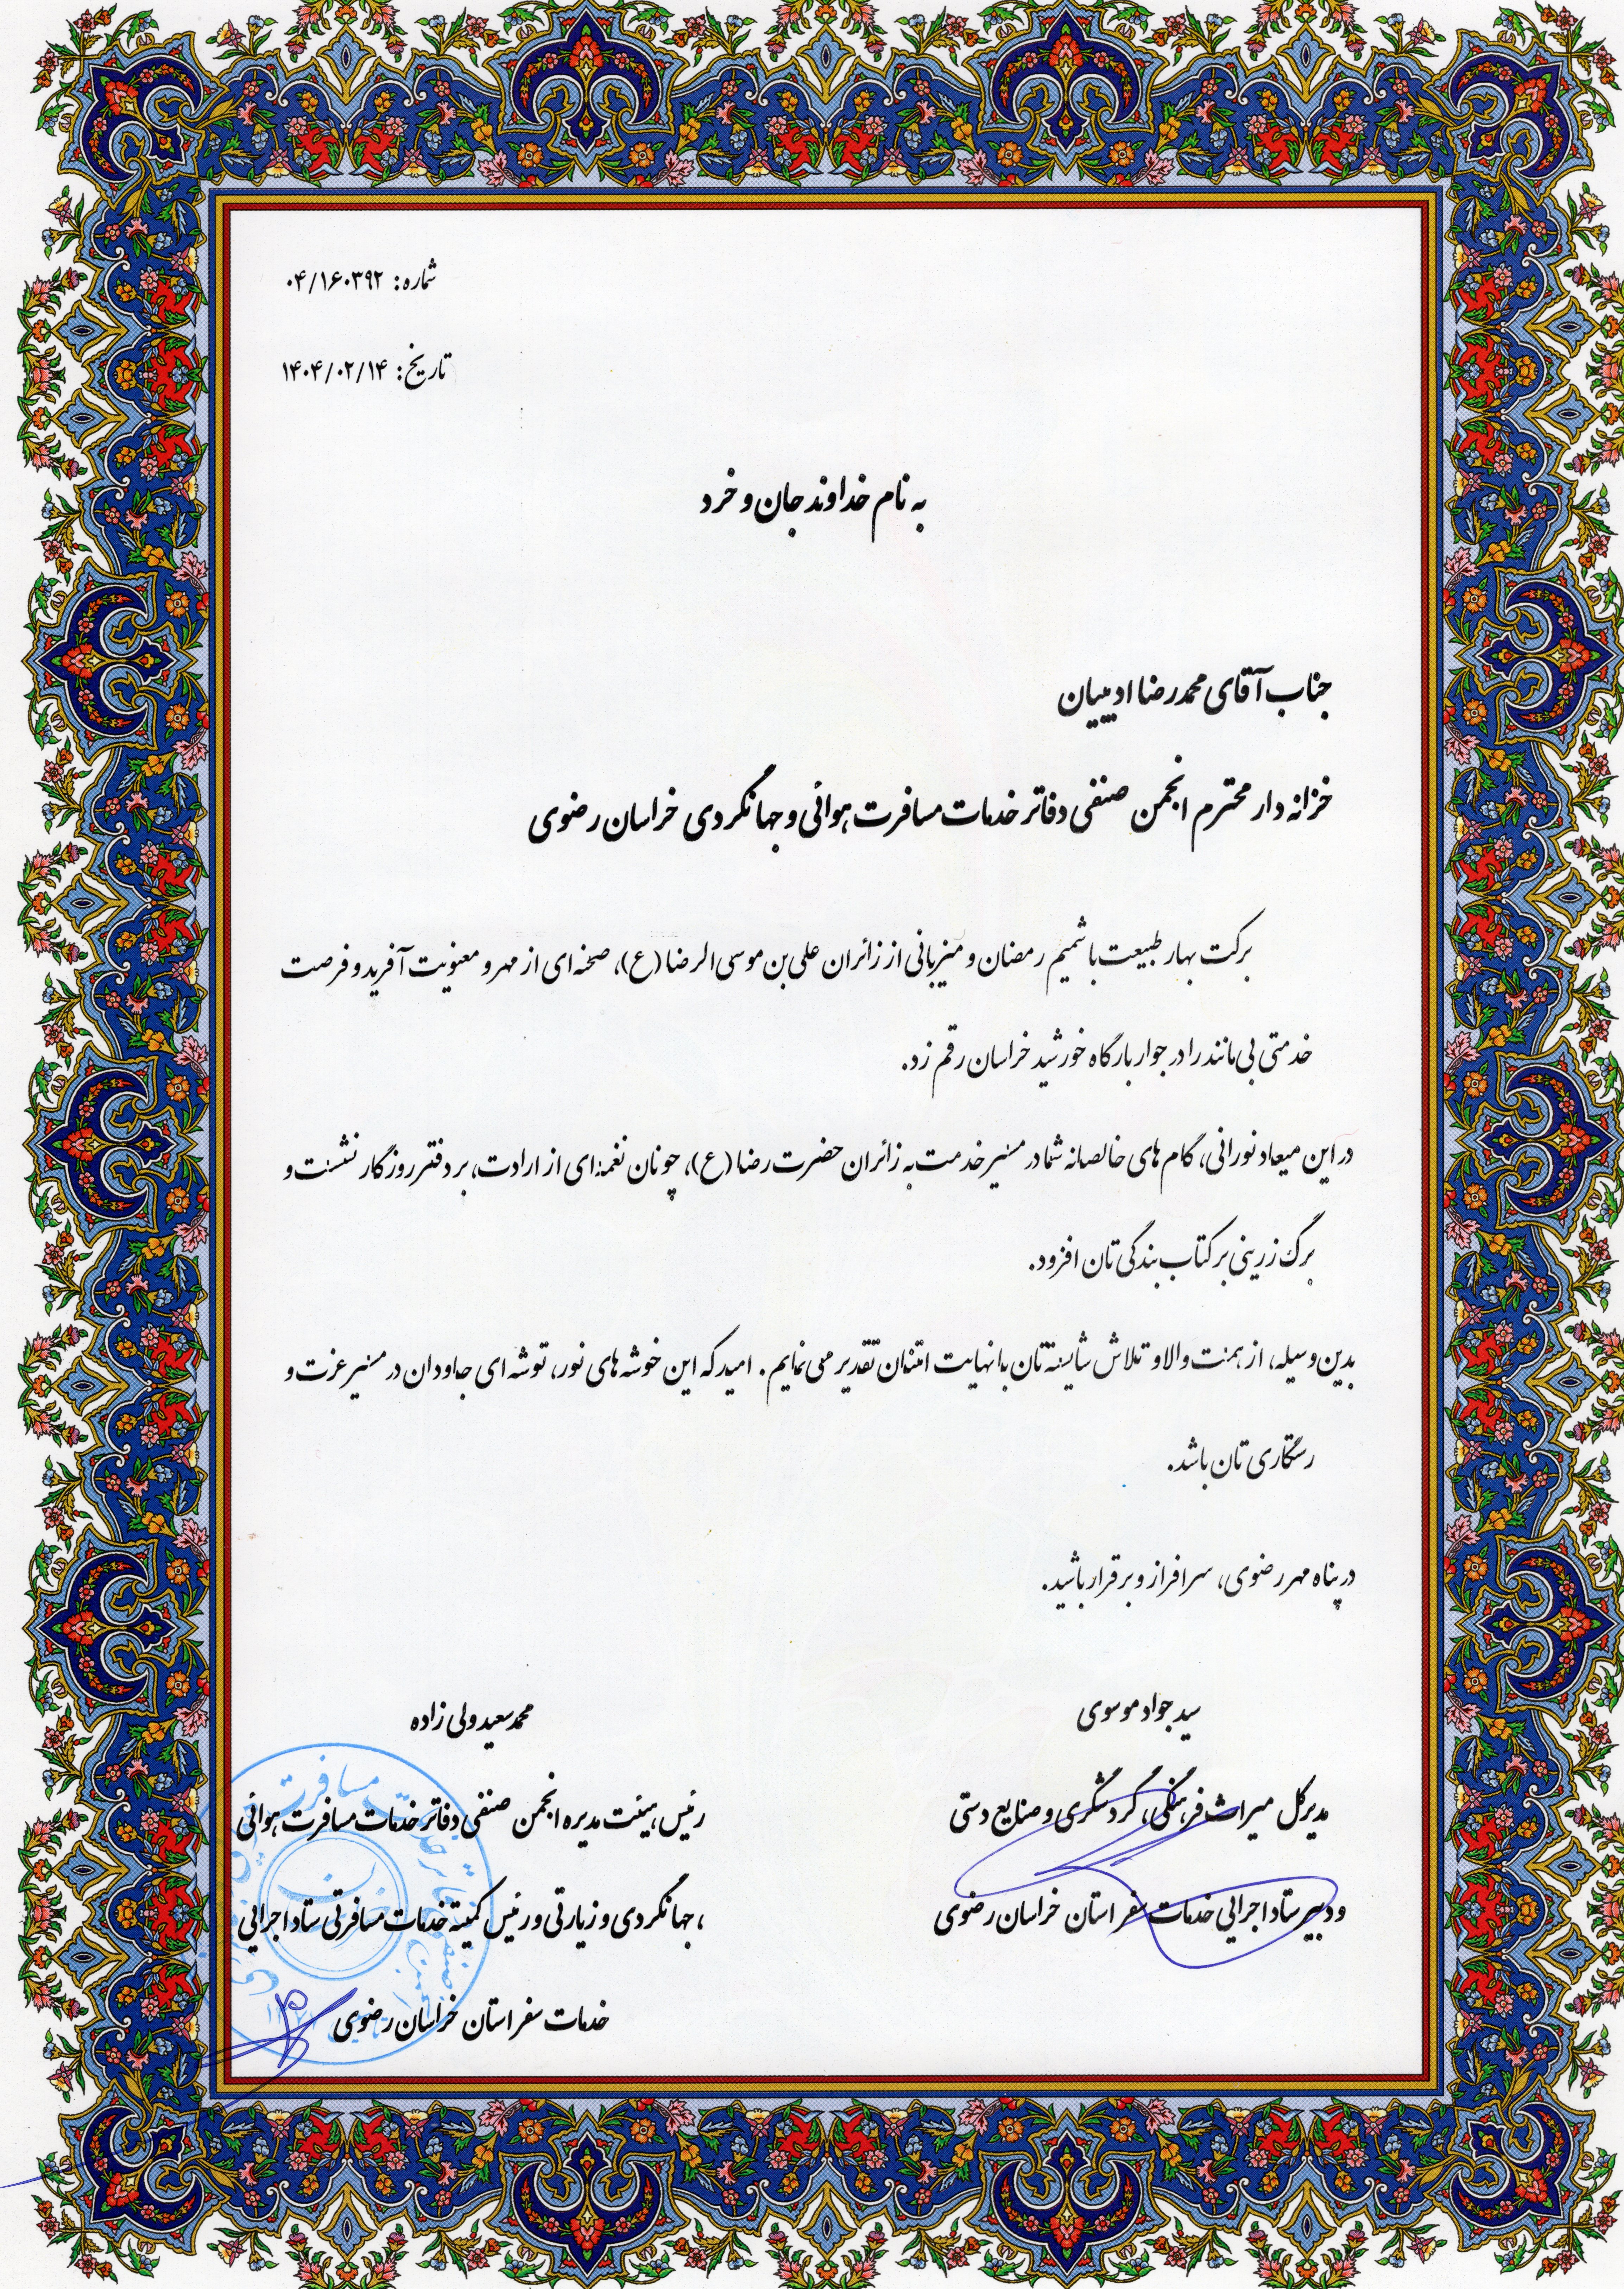 شماره: ۰۴/۱۶۰۳۹۲
تاریخ: ۱۴۰۴/۰۲/۱۴
به نام خداوند جان و خرد
جناب آقای محمدرضا ادیبیان
خزانه دار محترم انجمن صنفی دفاتر خدمات مسافرت هوائی و جهانگردی خراسان رضوی
برکت بهار طبیعت با شمیم رمضان و میزبانی از زائران علی بن موسی الرضا (ع)، صحنه ای از مهر و معنویت آفرید و فرصت
خدمتی بی مانند را در جوار بارگاه خورشید خراسان رقم زد.
در این میعاد نورانی، گام های خالصانه شما در مسیر خدمت به زائران حضرت رضا (ع)، چونان نغمه ای از ارادت، بر دفتر روزگار نشست و
برگ زرینی بر کتاب بندگی تان افزود.
بدین وسیله، از همت والا و تلاش شایسته تان با نهایت امتنان تقدیر می نمایم. امید که این خوشه های نور، توشه ای جاودان در مسیر عزت و
رستگاری تان باشد.
در پناه مهر رضوی، سرافراز و برقرار باشید.
سید جواد موسوی
مدیرکل میراث فرهنگی، گردشگری و صنایع دستی
و دبیر ستاد اجرایی خدمات سفر استان خراسان رضوی
محمد سعید ولی زاده
رئیس هیئت مدیره انجمن صنفی دفاتر خدمات مسافرت هوائی
، جهانگردی و زیارتی و رئیس کمیته خدمات مسافرتی ستاد اجرایی
خدمات سفر استان خراسان رضوی